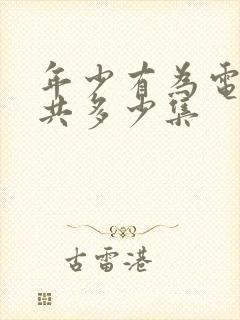 年少有為電
共多少集
古雷港